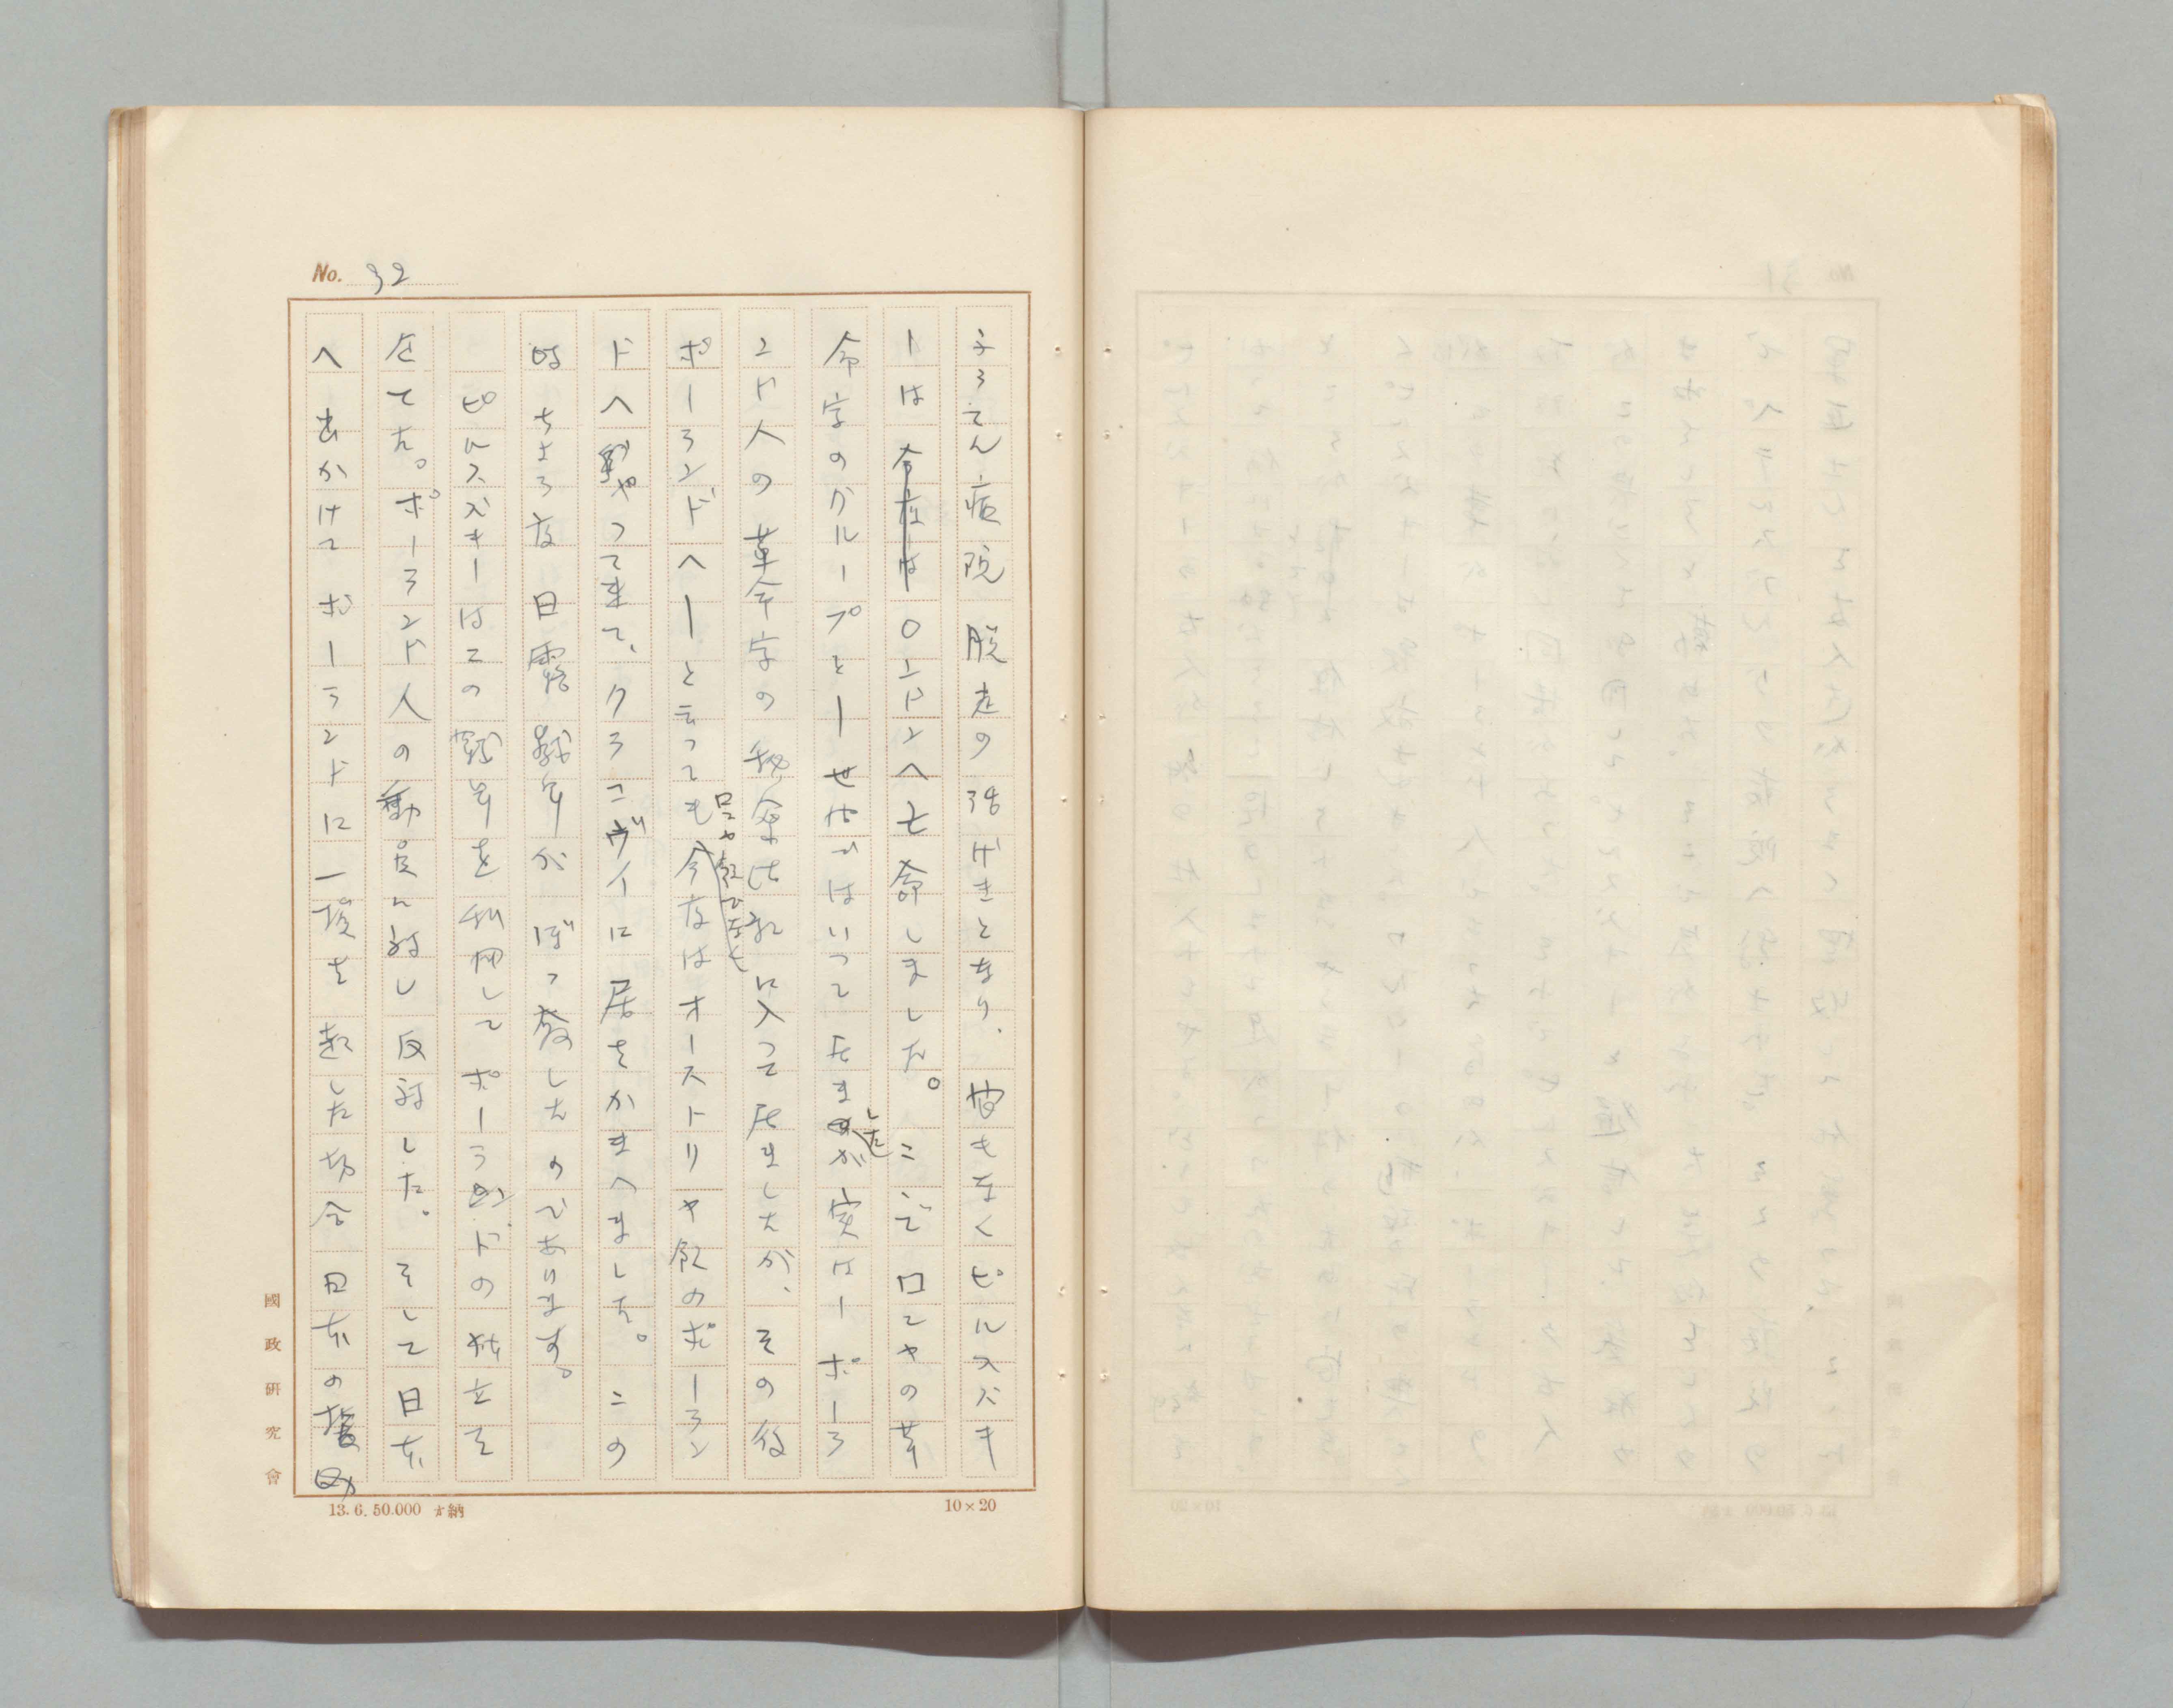 No. 32
ふうてん病院脱走の活げきとなり、間もなくピルスズキ
ーは今度はロンドンへ亡命しました。こゝでロシヤの革
命家のグループと——せせゞはいつて居ましたが実は——ポーラ
ンド人の革命家の秘密結社に入つて居ましたが、その後
ポーランドへ——と云つても今度はオーストリヤ領のポーラン
ロシヤ領でなくも
ドへやつて来て、クラコヴイに居をかまへました。この
時ちようど日露戦争がぼつ発したのであります。
ピルスズキーはこの戦争を利用してポーランドの独立を
企てた。ポーランド人の動員に対し反対した。そして日本
へ出かけてポーランドに一揆を起した場合日本の援助
國政研究會
13.6.50.000 納
10×20